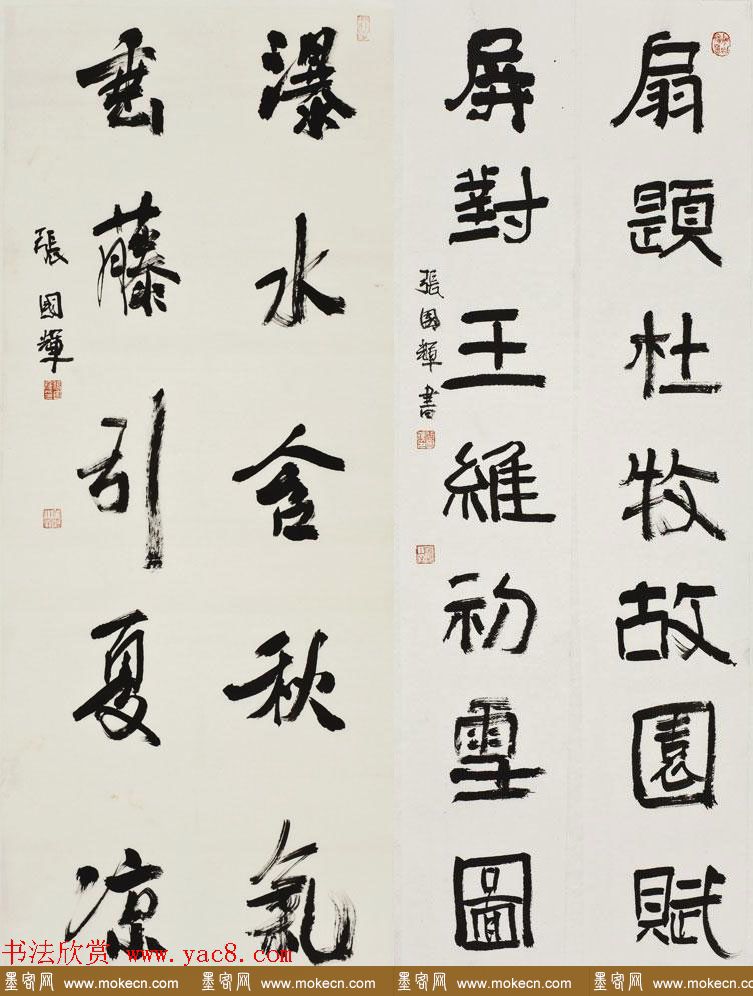 扇題杜牧故園賦
屏對王維初雪圖
張國輝書
瀑水含秋氣
垂藤引夏凉
張國輝
书法欣赏 www.yac8.com
墨客网 www.mokecn.com 墨客网 www.mokecn.com 墨客网 www.mokecn.com 墨客网 www.mokecn.com